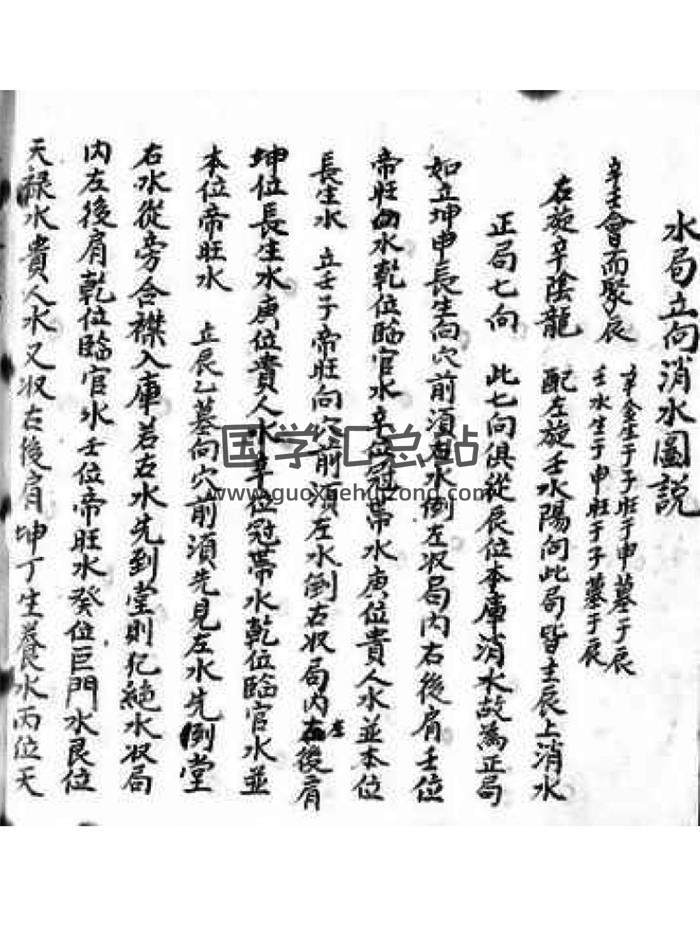 水局立向消水圖說
辛壬會而聚辰
辛金生于子旺于申墓于辰
壬水生于申旺于子墓于辰
右旋辛陰龍 配左旋壬水陽向此局皆主辰上消水
正局七向 此七向俱從辰位本庫消水故為正局
如立坤申長生向穴前須右水倒左収局內右後肩壬位
帝旺水乾位臨官水辛位冠帶水庚位貴人水並本位
長生水 立壬子帝旺向穴前須左水倒右収局內左後肩
坤位長生水庚位貴人水辛位冠帶水乾位臨官水並
本位帝旺水 立辰乙墓向穴前須先見左水先倒堂
右水從旁合襟入庫若右水先到堂則犯絕水収局
內左後肩乾位臨官水壬位帝旺水癸位巨門水艮位
天祿水貴人水又収右後肩坤丁生養水丙位天
国学汇总站
www.guoxuehuizong.com